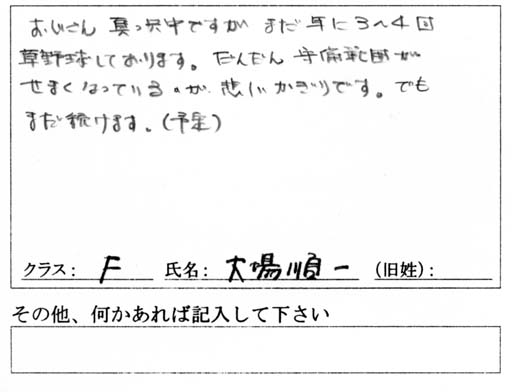 おじさん 真っ只中ですが まだ 年に3〜4回
草野球しております。だんだん 守備範囲が
せまくなっているのが 悲しいかぎりです。でも
まだ続けます。(予定)
クラス: F 氏名: 大場順一 (旧姓):
その他、何かあれば記入して下さい